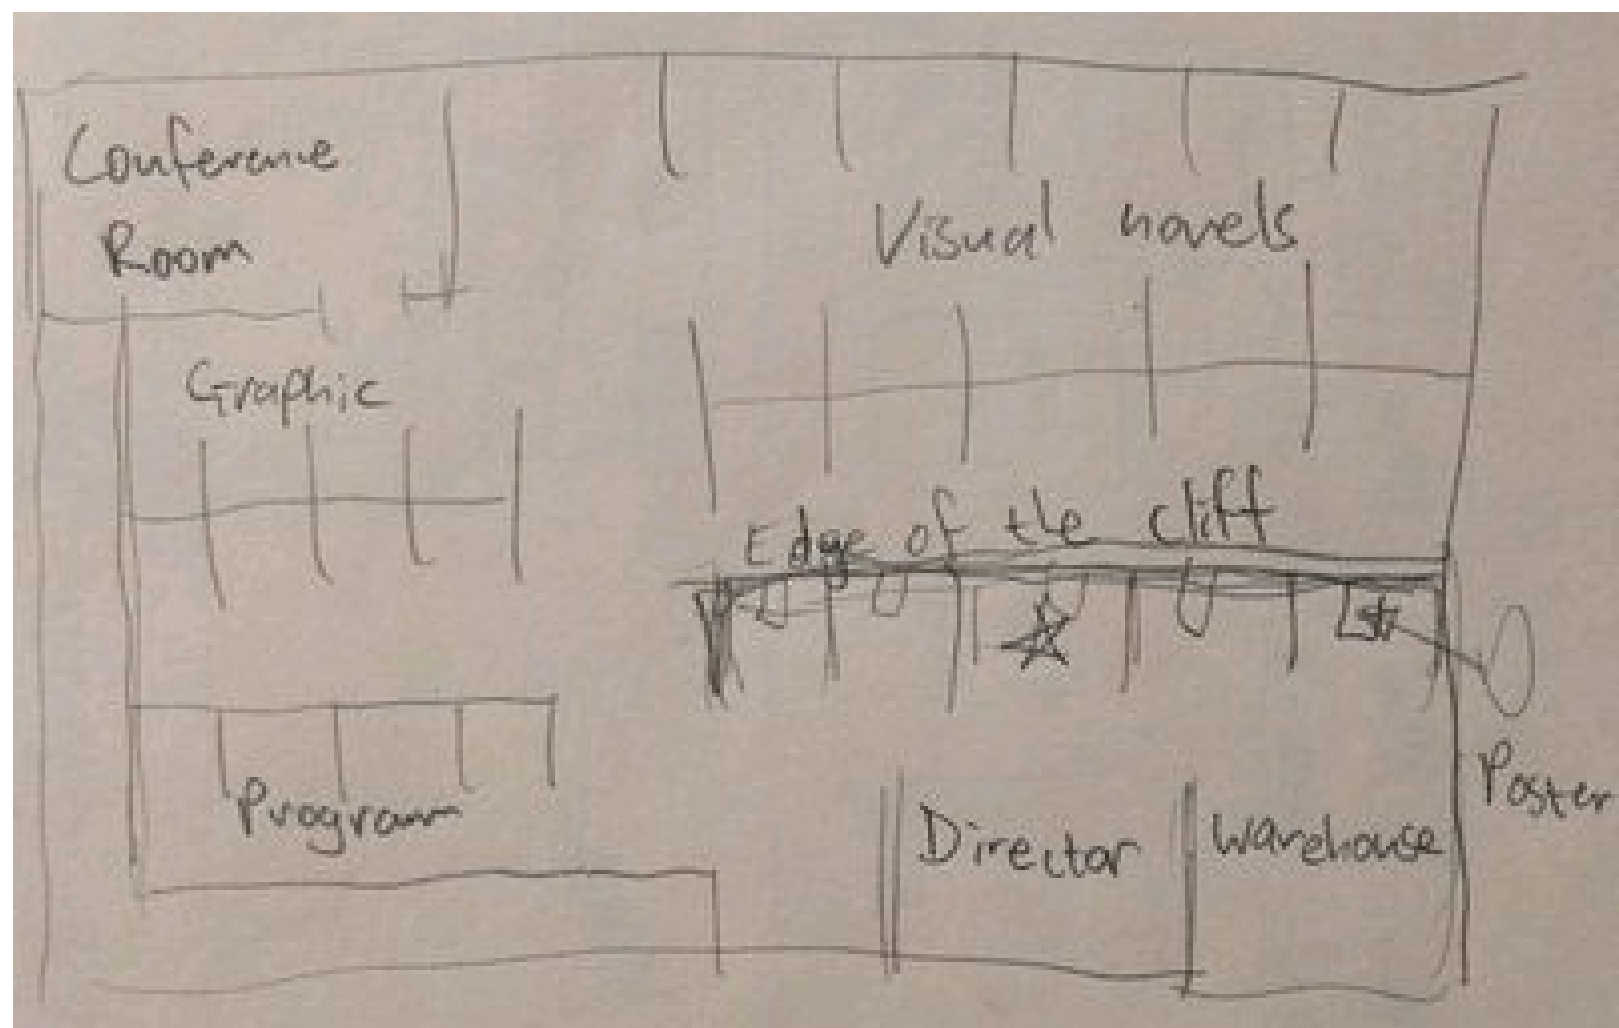 Conference
Room
Visual novels
Graphic
Edge of the cliff
Poster
Program
Director
Warehouse